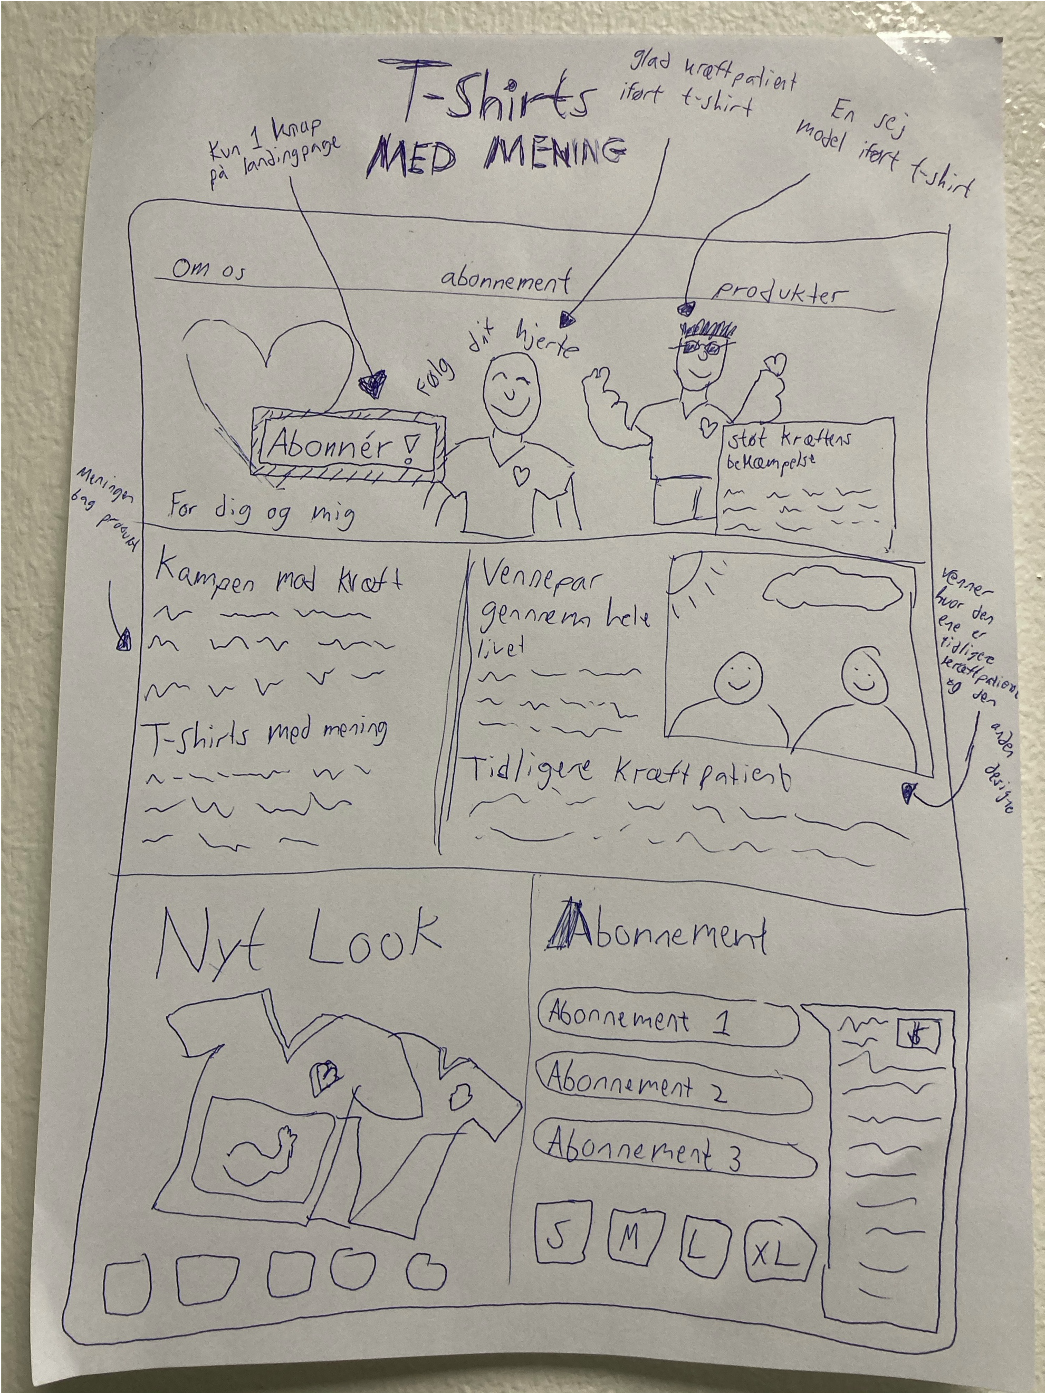 T-Shirts
MED MENING
Kun 1 knap
på landingpage
glad kræftpatient
iført t-shirt
En sej
model iført t-shirt
Om os
abonnement
produkter
Følg dit hjerte
Abonnér!
støt kræftens
bekæmpelse
For dig og mig
Meningen
bag produkt
Kampen mod kræft
T-shirts med mening
Vennepar
gennem hele
livet
Tidligere kræftpatient
venner
hvor den
ene er
tidligere
kræftpatient
og den
anden
Nyt Look
Abonnement
Abonnement 1
Abonnement 2
Abonnement 3
S M L XL